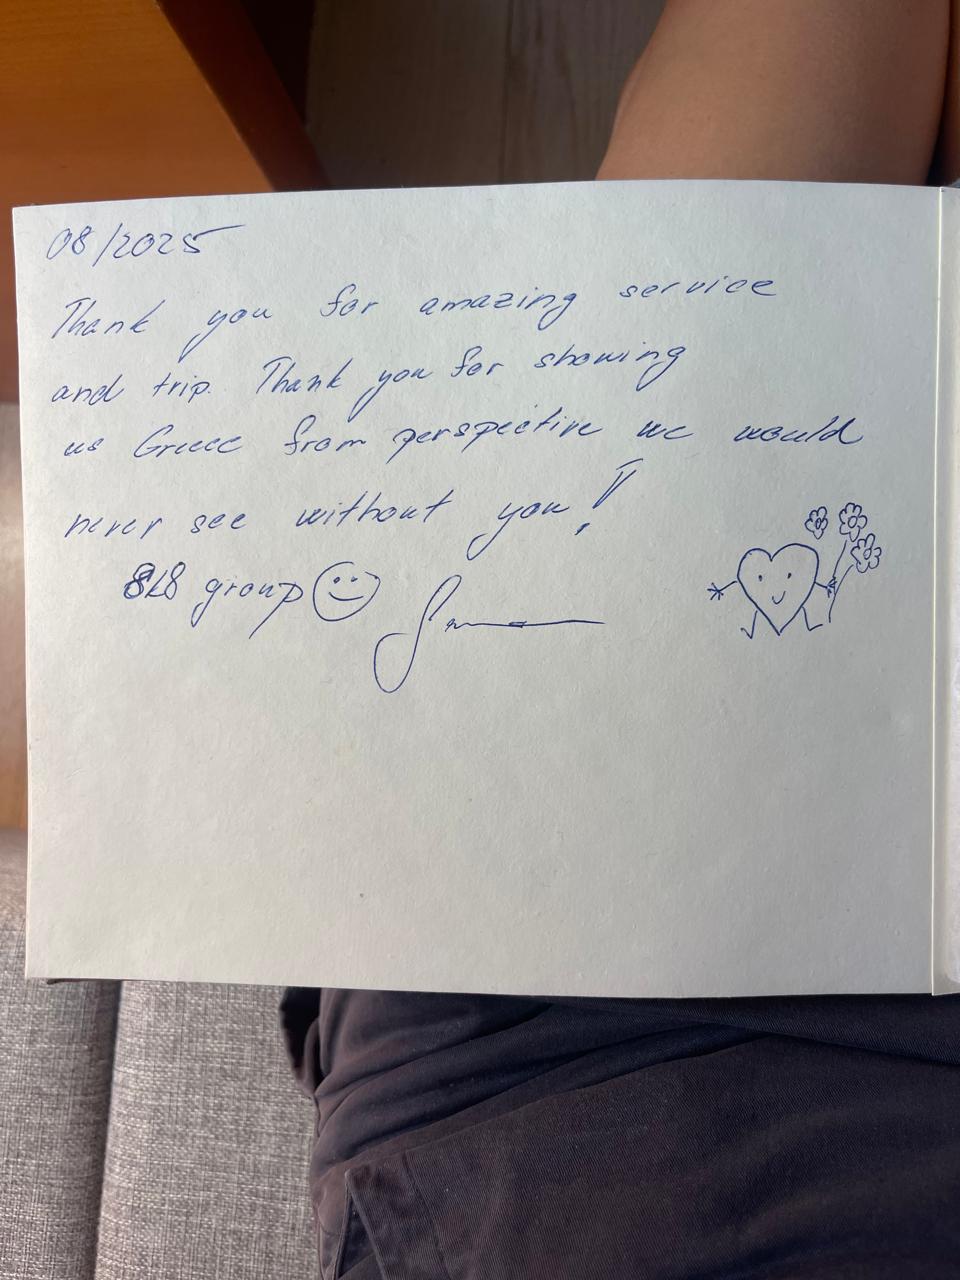 08/2025
Thank you for amazing service
and trip. Thank you for showing
us Greece from perspective we would
never see without you!
group